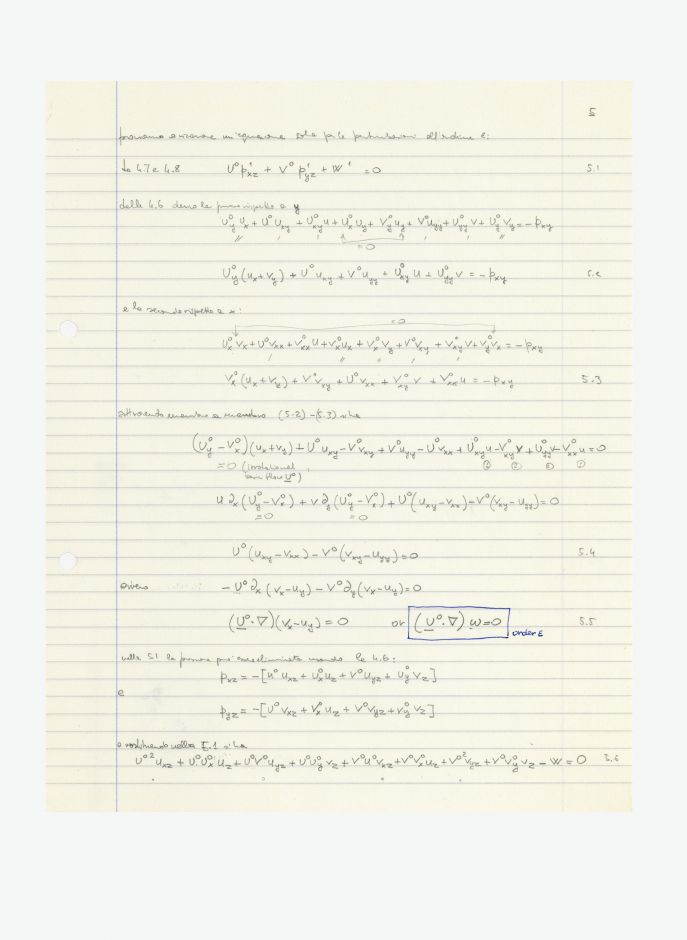 5
proviamo a ricavare un'equazione solo per le perturbazioni all'ordine ε:
da 4.7 e 4.8 U⁰p'ₓz + V⁰p'yz + W' = 0 5.1
dalla 4.6 derivo la prima rispetto a y
U⁰y uₓ + U⁰uₓy + U⁰ₓy u + U⁰ₓ uy + V⁰y uy + V⁰uyy + U⁰yy v + U⁰y vy = -pₓy
= 0
U⁰y (uₓ + vy) + U⁰uₓy + V⁰uyy + U⁰ₓy u + U⁰yy v = -pₓy 5.2
e la seconda rispetto a x:
= 0
U⁰ₓ vₓ + U⁰vₓₓ + V⁰ₓₓ u + V⁰ₓ uₓ + V⁰ₓ vy + V⁰vₓy + V⁰ₓy v + V⁰y vₓ = -pₓy
V⁰ₓ (uₓ + vy) + V⁰vₓy + U⁰vₓₓ + V⁰ₓy v + V⁰ₓₓ u = -pₓy 5.3
sottraendo membro a membro (5.2) - (5.3) si ha
(U⁰y - V⁰ₓ)(uₓ + vy) + U⁰uₓy - V⁰vₓy + V⁰uyy - U⁰vₓₓ + U⁰ₓy u - V⁰ₓy v + U⁰yy v - V⁰ₓₓ u = 0
= 0 (irrotational ① ② ② ①
basic flow U⁰)
u ∂ₓ (U⁰y - V⁰ₓ) + v ∂y (U⁰y - V⁰ₓ) + U⁰(uₓy - vₓₓ) - V⁰(vₓy - uyy) = 0
= 0 = 0
U⁰(uₓy - vₓₓ) - V⁰(vₓy - uyy) = 0 5.4
ovvero - U⁰∂ₓ (vₓ - uy) - V⁰∂y (vₓ - uy) = 0
(U⁰·∇)(vₓ - uy) = 0 or (U⁰·∇) ω = 0 order ε 5.5
nella 5.1 la pressione può essere eliminata usando le 4.6:
pₓz = -[U⁰uₓz + U⁰ₓ uz + V⁰uyz + U⁰y vz]
e
pyz = -[U⁰vₓz + V⁰ₓ uz + V⁰vyz + V⁰y vz]
e sostituendo nella 5.1 si ha
U⁰²uₓz + U⁰U⁰ₓ uz + U⁰V⁰uyz + U⁰U⁰y vz + V⁰U⁰vₓz + V⁰V⁰ₓ uz + V⁰²vyz + V⁰V⁰y vz - W = 0 5.6